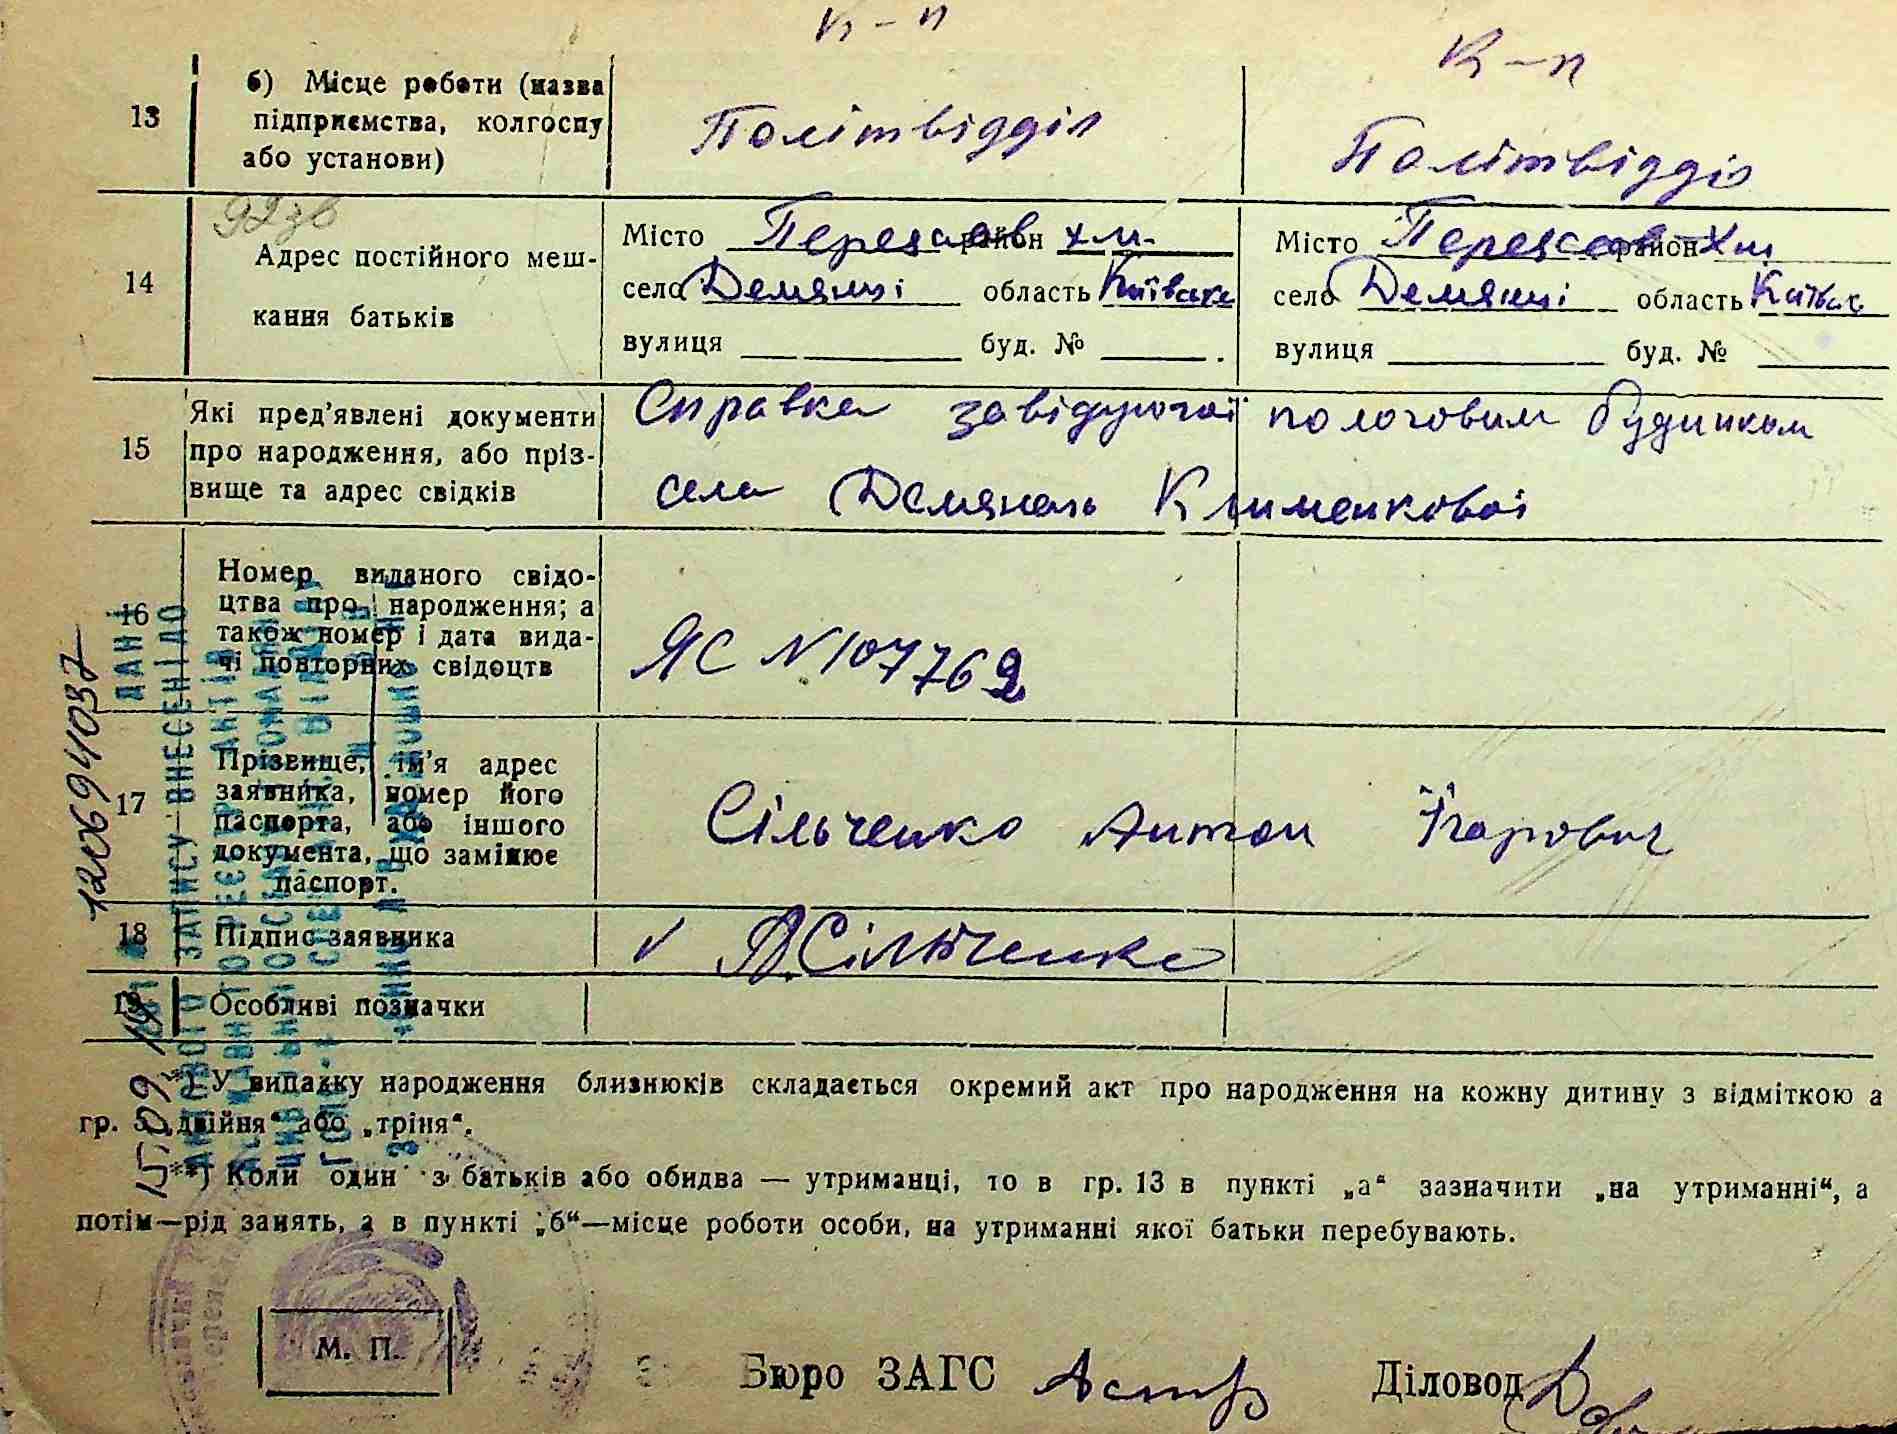 к-п
к-п
13
б) Місце роботи (назва
підприємства, колгоспу
або установи)
Політвідділ
Політвідділ
14
Адрес постійного меш-
кання батьків
Місто Переяслов район хм.
село Демянці область Київська
вулиця буд. №
Місто Переяслов район Хм
село Демянці область Київськ
вулиця буд. №
15
Які пред'явлені документи
про народження, або пріз-
вище та адрес свідків
Справка завідуючої пологовим будинком
села Клименкової
16
Номер виданого свідо-
цтва про народження; а
також номер і дата вида-
чі повторних свідоцтв
ЯС N 107769
17
Прізвище, ім'я адрес
заявника, номер його
паспорта, або іншого
документа, що замінює
паспорт.
Сільченко Антон Ігорович
18
Підпис заявника
Сільченко
19
Особливі позначки
*) У випадку народження близнюків складається окремий акт про народження на кожну дитину з відміткою а
гр. 3 „двійня“ або „тріня“.
**) Коли один з батьків або обидва — утриманці, то в гр. 13 в пункті „а“ зазначити „на утриманні“, а
потім—рід занять, а в пункті „б“—місце роботи особи, на утриманні якої батьки перебувають.
М. П.
Бюро ЗАГС
Діловод
ДАНІ
ЗАПИСУ ВНЕСЕНІ ДО
1206941037
15.09